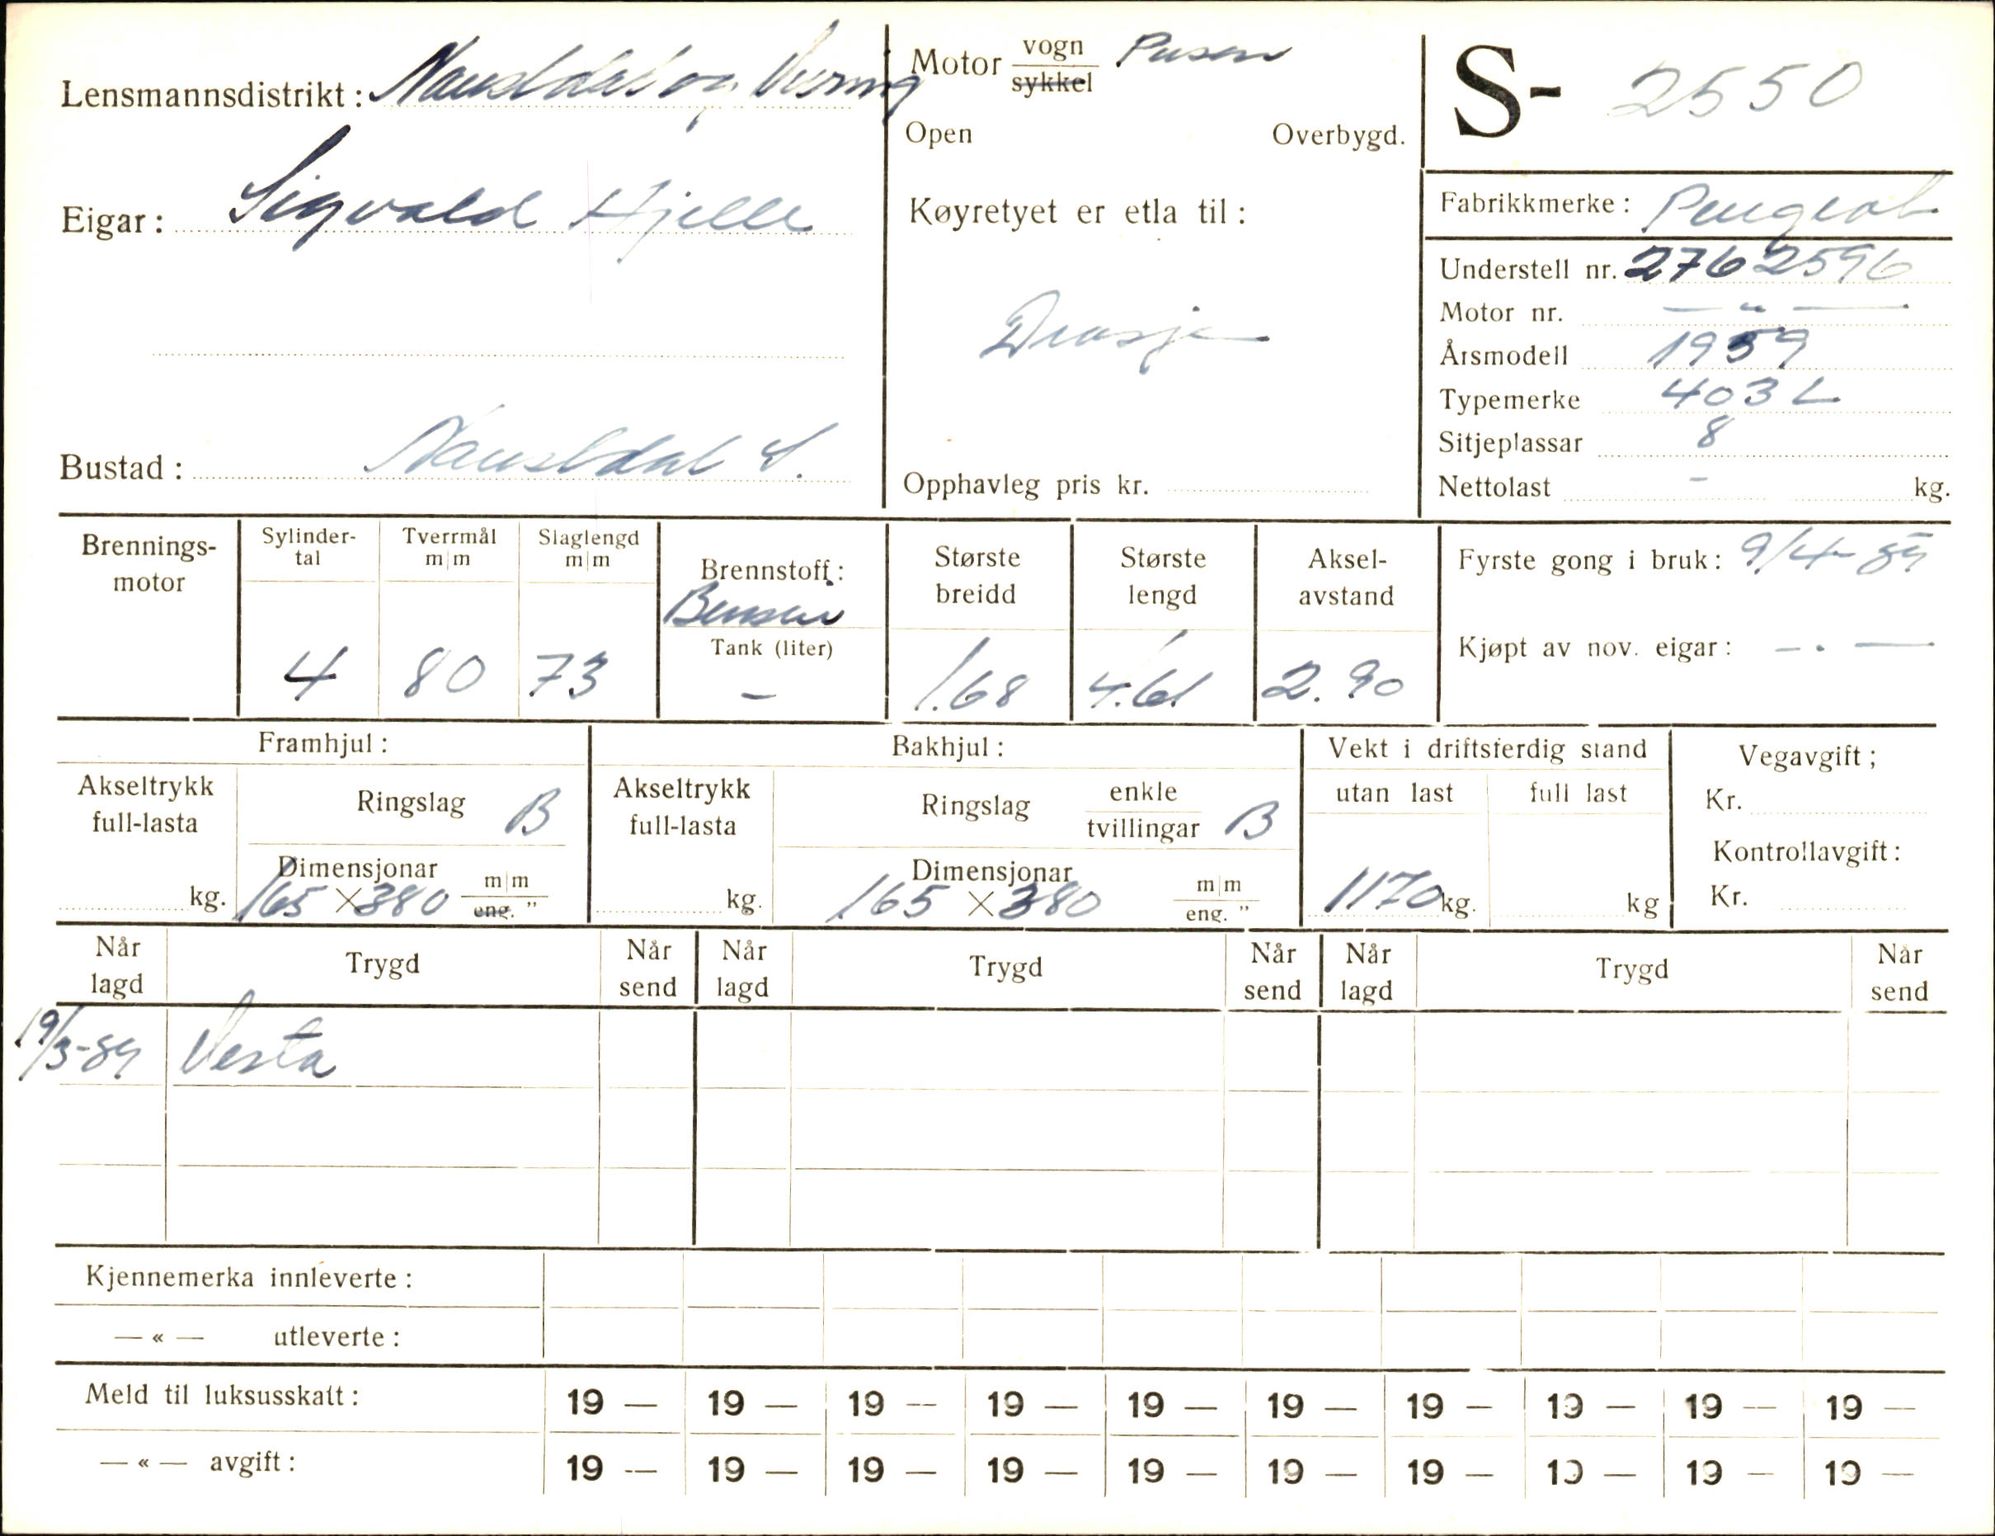 Lensmannsdistrikt: Naustdal og Vevring
Eigar: Sigvald Hjelle
Bustad: Naustdal S.
Motor vogn
sykkel
Open Overbygd.
Køyretyet er etla til:
Drosje
Opphavleg pris kr.
S- 2550
Fabrikkmerke: Peugeot
Understell nr. 2762596
Motor nr. — " —
Årsmodell 1959
Typemerke 403 L
Sitjeplassar 8
Nettolast - kg.
Brennings-
motor
Sylinder-
tal
4
Tverrmål
m|m
80
Slaglengd
m|m
73
Brennstoff:
Bensin
Tank (liter)
-
Største
breidd
1.68
Største
lengd
4.61
Aksel-
avstand
2.90
Fyrste gong i bruk: 9/4-59
Kjøpt av nov. eigar: — . —
Framhjul:
Akseltrykk
full-lasta
kg.
Ringslag B
Dimensjonar
165 × 380 m|m
eng. "
Bakhjul:
Akseltrykk
full-lasta
kg.
Ringslag enkle
tvillingar B
Dimensjonar
165 × 380 m|m
eng. "
Vekt i driftsferdig stand
utan last full last
1170 kg. kg
Vegavgift;
Kr.
Kontrollavgift:
Kr.
Når
lagd
Trygd
Når
send
Når
lagd
Trygd
Når
send
Når
lagd
Trygd
Når
send
19/3-59 Vesta
Kjennemerka innleverte:
— « — utleverte:
Meld til luksusskatt: 19 — 19 — 19 — 19 — 19 — 19 — 19 — 19 — 19 — 19 —
— « — avgift: 19 — 19 — 19 — 19 — 19 — 19 — 19 — 19 — 19 — 19 —